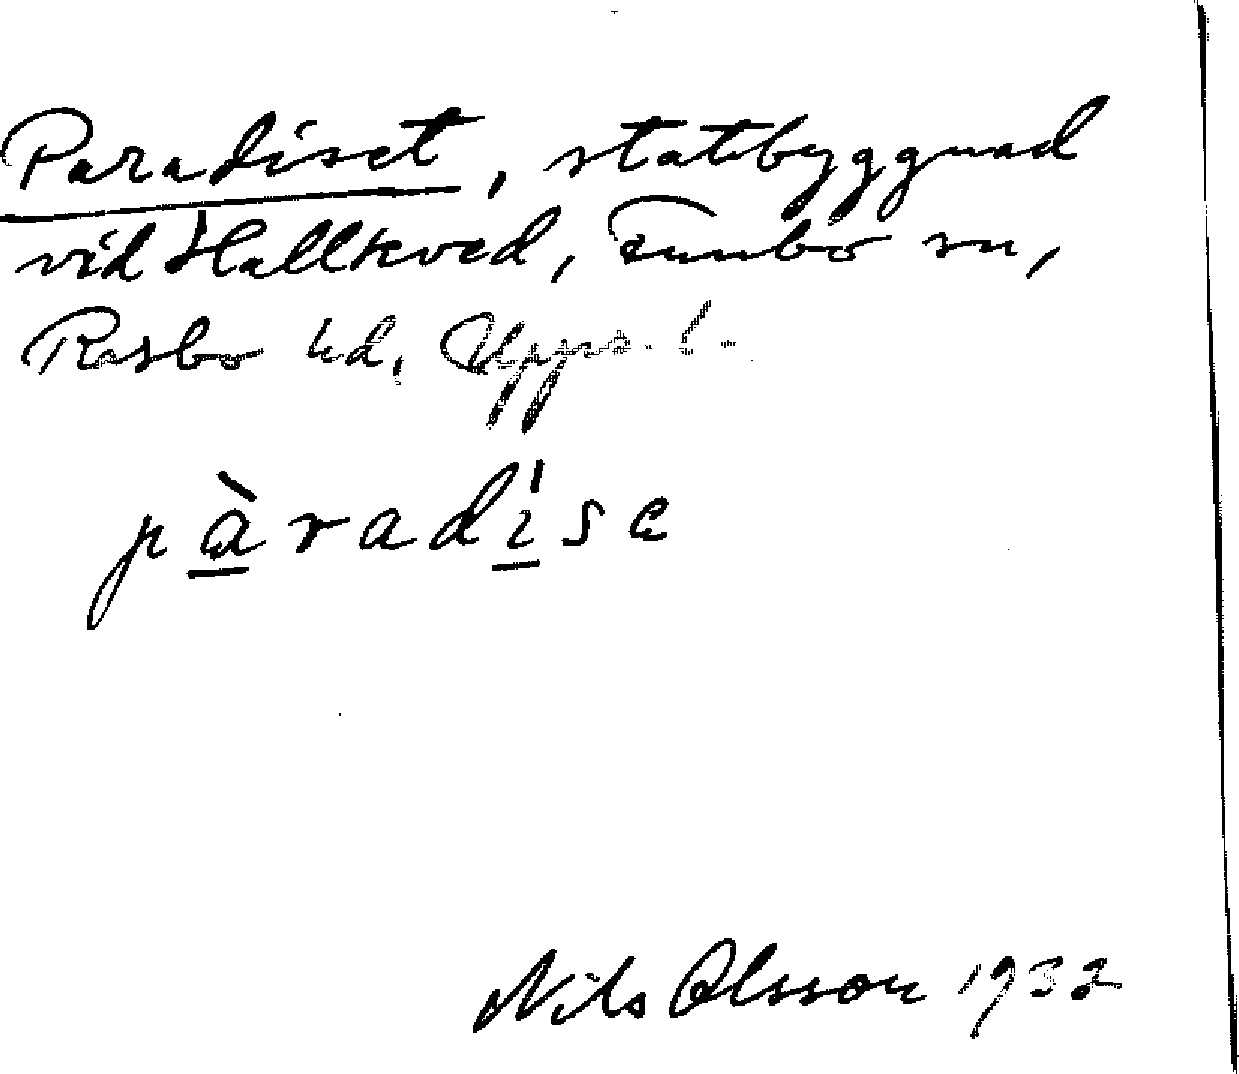 Paradiset, statbyggnad
vid Hallkved, Funbo sn,
Rasbo hd, Upps. l.
pàradi'se
Nils Olsson 1932